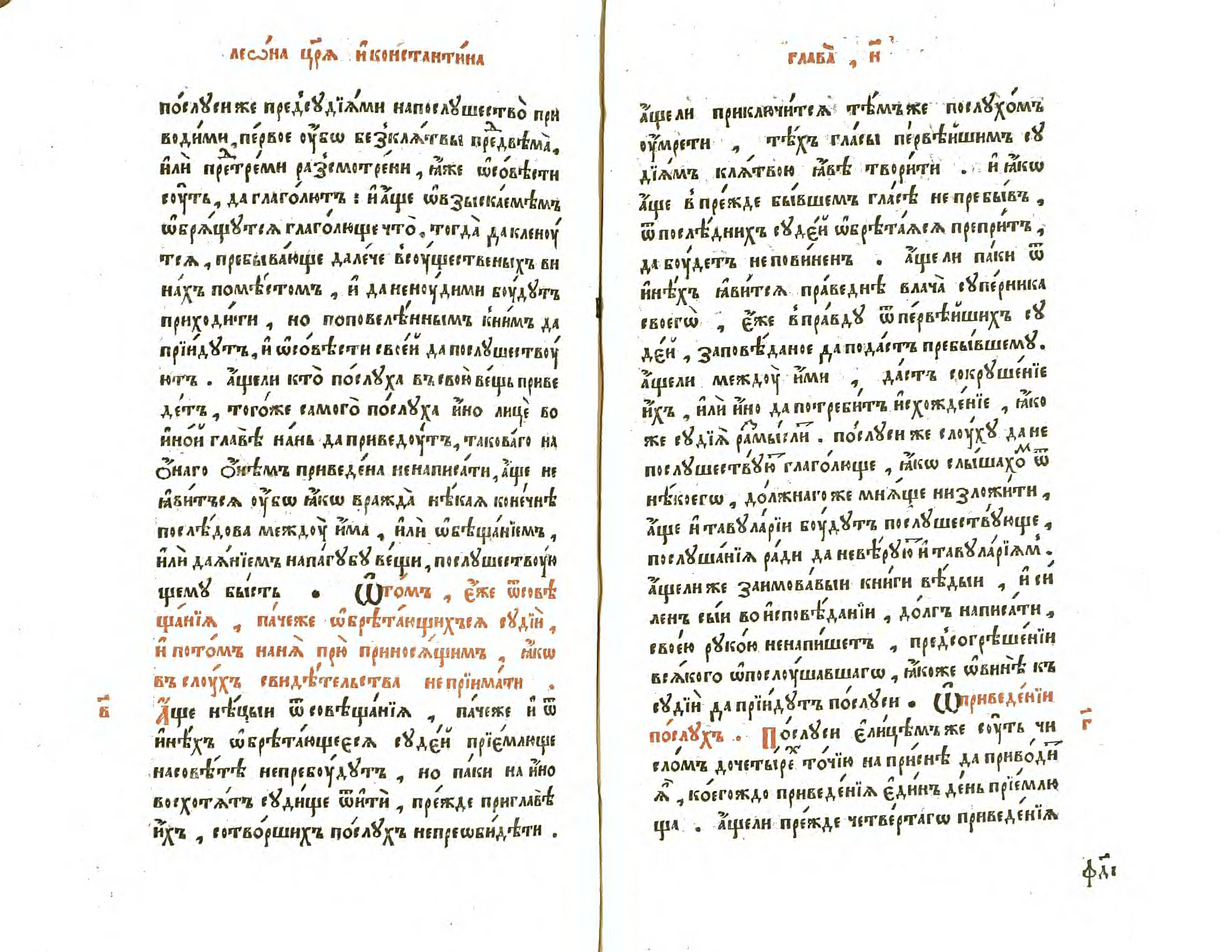 леѡ́на цр҃ѧ и҆ константи́на
по́слꙋси же пред̾сꙋдїѧ́ми напослꙋшество̀ при
води́ми, пе́рвое ᲂу҆́бѡ без̾клѧ́твы пред̾двѣма̀,
и҆лѝ претре́ми раз̾смотре́ни, ꙗ҆́же ѿсо́вѣсти
сꙋ́ть, да глаго́лютъ : и҆ а҆́ще ѡ҆взыска́емѣмъ
ѡ҆брѧ́щꙋтсѧ глаго́люще что̀, тогда̀ да кленꙋ́
тсѧ, пребыва́юще дале́че всꙋ́щественыхъ ви
на́хъ помѣ́стомъ, и҆ да ненꙋ́дими бꙋ́дꙋтъ
приходи́ти, но поповелѣ́ннымъ к̾ни́мъ да
прїи́дꙋтъ, и҆ ѿсо́вѣсти свое́й да послꙋ́шествꙋ
ютъ. а҆́щели кто̀ по́слꙋха въ свою̀ ве́щь приве
де́тъ, того́же самого̀ по́слꙋха и҆́но лицѐ во
и҆но́й главѣ̀ на́нь да приведꙋ́тъ, такова́го на
ѻ҆́наго ѻ҆не́мъ приведе́на ненаписа́ти, а҆́ще не
ꙗ҆ви́тъсѧ ᲂу҆́бѡ ꙗ҆́кѡ вражда̀ нѣ́каѧ коне́чнѣ
послѣ́дова междꙋ̀ и҆́ма, и҆лѝ ѡ҆бѣща́нїемъ,
и҆лѝ даѧ́нїемъ напа́гꙋбꙋ ве́щи, послꙋ́шествꙋю
щемꙋ бы́сть . Ѡ҆ то́мъ, є҆́же ѿсовѣ
ща́нїѧ, па́чеже ѡ҆брѣта́ющихъсѧ сꙋдїи̑,
и҆ пото́мъ нанѧ̀ прю̀ приносѧ́щимъ, ꙗ҆́кѡ
въ слꙋ́хъ свидѣ́тельства непрїима́ти .
в҃
А҆́ще нѣ́цыи ѿсовѣща́нїѧ, па́чеже и҆ ѿ
и҆нѣ́хъ ѡ҆брѣта́ющеесѧ сꙋде́й прїе́млюще
насовѣ́тѣ непребꙋ́дꙋтъ, но па́ки на и҆́но
восхотѧ́тъ сꙋди́ще ѿи́ти, пре́жде приглавѣ̀
и҆́хъ, сотво́ршихъ по́слꙋхъ непреѡби́дѣти .
глава̀, и҃
а҆́щели приключи́тсѧ тѣ́мъже послꙋхо́мъ
ᲂу҆мре́ти, тѣ́хъ гла́сы первѣ́йшимъ сꙋ
дїѧ́мъ клѧ́твою ꙗ҆́вѣ твори́ти . и҆ ꙗ҆́кѡ
а҆́ще в̾пре́жде бы́вшемъ гла́сѣ не пребы́въ,
ѿ послѣ́днихъ сꙋде́й ѡ҆брѣта́ѧсѧ препри́тъ,
да бꙋ́детъ непови́ненъ . а҆́щели па́ки ѿ
и҆нѣ́хъ ꙗ҆ви́тсѧ пра́веднѣ влача̀ сꙋпе́рника
своегѡ̀, є҆́же в̾пра́вдꙋ ѿпервѣ́йшихъ сꙋ
де́й, заповѣ́даное да пода́стъ пребы́вшемꙋ.
а҆́щели междꙋ̀ и҆́ми, да́стъ сокрꙋше́нїе
и҆́хъ, и҆лѝ и҆́но да потреби́тъ и҆схожде́нїе, ꙗ҆́ко
же сꙋдїѧ̀ ра́мысли. по́слꙋси же слꙋ́хꙋ да не
послꙋ́шествꙋю глаго́люще, ꙗ҆́кѡ слы́шахоⷨ ѿ
нѣ́коегѡ, до́лжнагоже мнѧ́ще низложи́ти,
а҆́ще и҆ тавꙋла́рїи бꙋ́дꙋтъ послꙋ́шествꙋюще,
послꙋша́нїѧ ра́ди да невѣ́рꙋю и҆ тавꙋла́рїѧм̾.
а҆́щели же заимова́выи кни́ги вѣ́дыи, и҆ си́
ленъ сы́и во и҆сповѣ́данїи, до́лгъ написа́ти,
свое́ю рꙋко́ю ненапи́шетъ, пред̾согрѣше́нїи
всѧ́кого ѡ҆послꙋ́шавшагѡ, ꙗ҆́коже ѡ҆винѣ̀ къ
сꙋдїи̑ да прїи́дꙋтъ по́слꙋси . Ѡ҆ приведе́нїи
по́слꙋхъ . По́слꙋси є҆ли́цѣмъже сꙋ́ть чи
г҃
сло́мъ дочеты́реⷯ то́чїю на при́снѣ да приво́ди
ѧ҆̀, коего́ждо приведе́нїѧ є҆ди́нъ де́нь прїе́млю
ща . а҆́щели пре́жде четве́ртагѡ приведе́нїѧ
ф҃дı